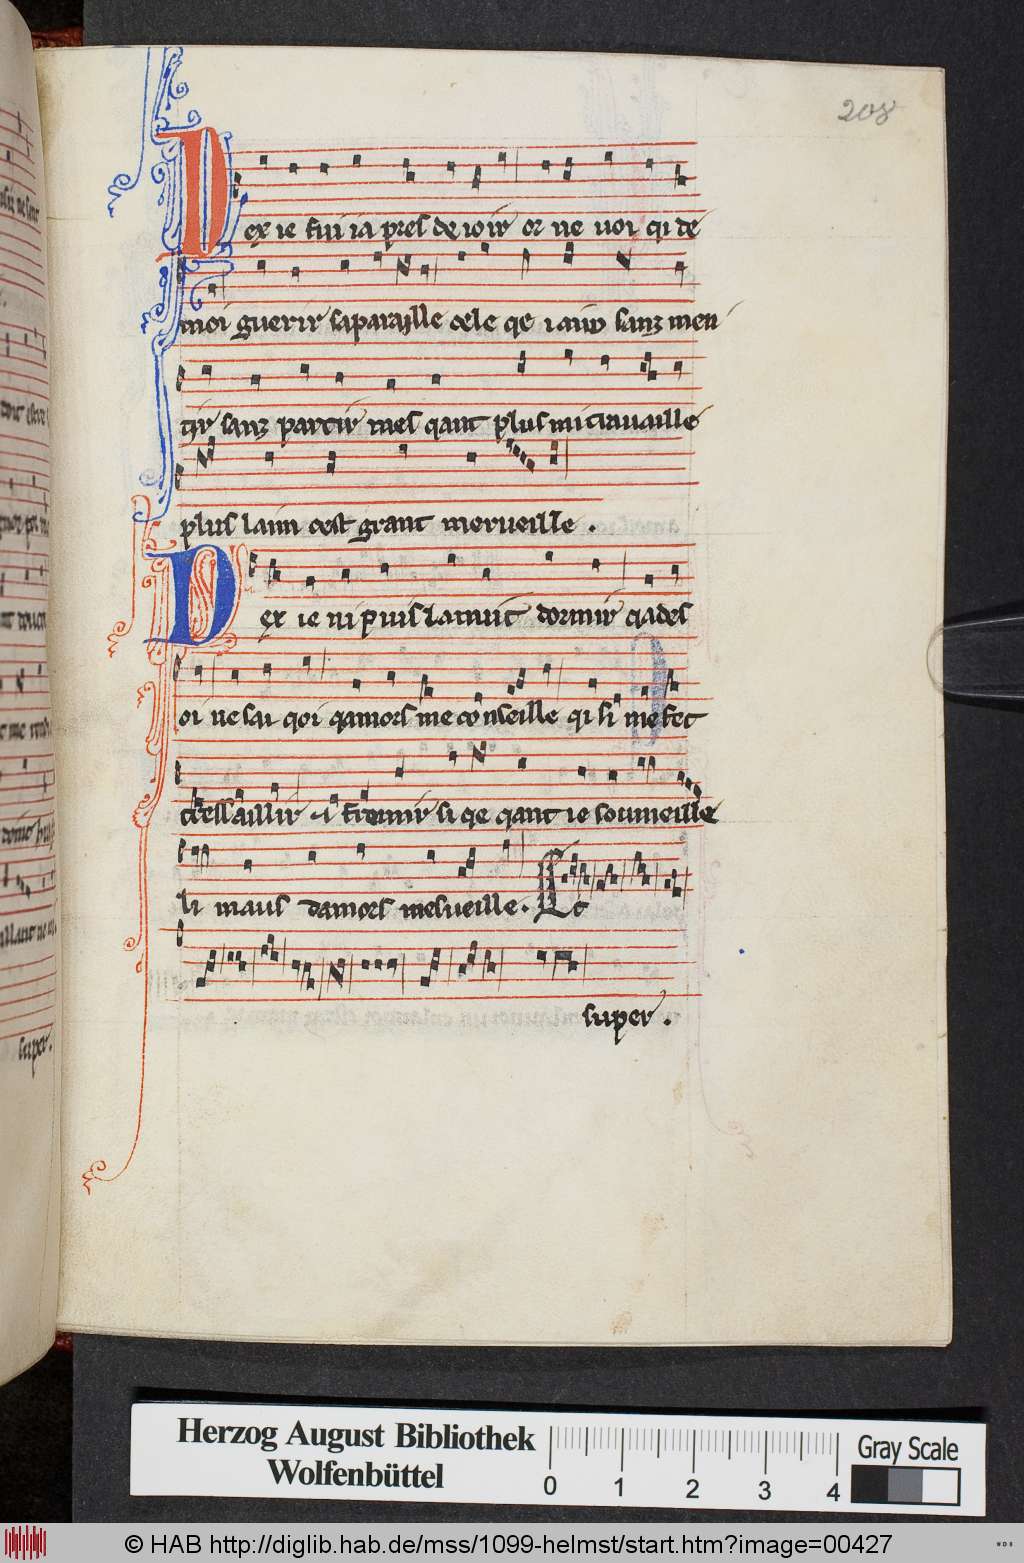 208
Dex ie fui ia pres de ioir or ne uoi qi de
moi guerir saparaille cele qe iaim sanz men
tir sanz partir mes qant plus mi trauaille
plus laim cest grant merueille .
Dex ie ni puis la nuit dormir qades
oi ne sai qoi qamors me conseille qi si me fet
tressaillir & fremir si qe qant ie soumeille
li maus damors mesueille . Et
super .
super .
Herzog August Bibliothek
Wolfenbüttel
0 1 2 3 4
Gray Scale
© HAB http://diglib.hab.de/mss/1099-helmst/start.htm?image=00427